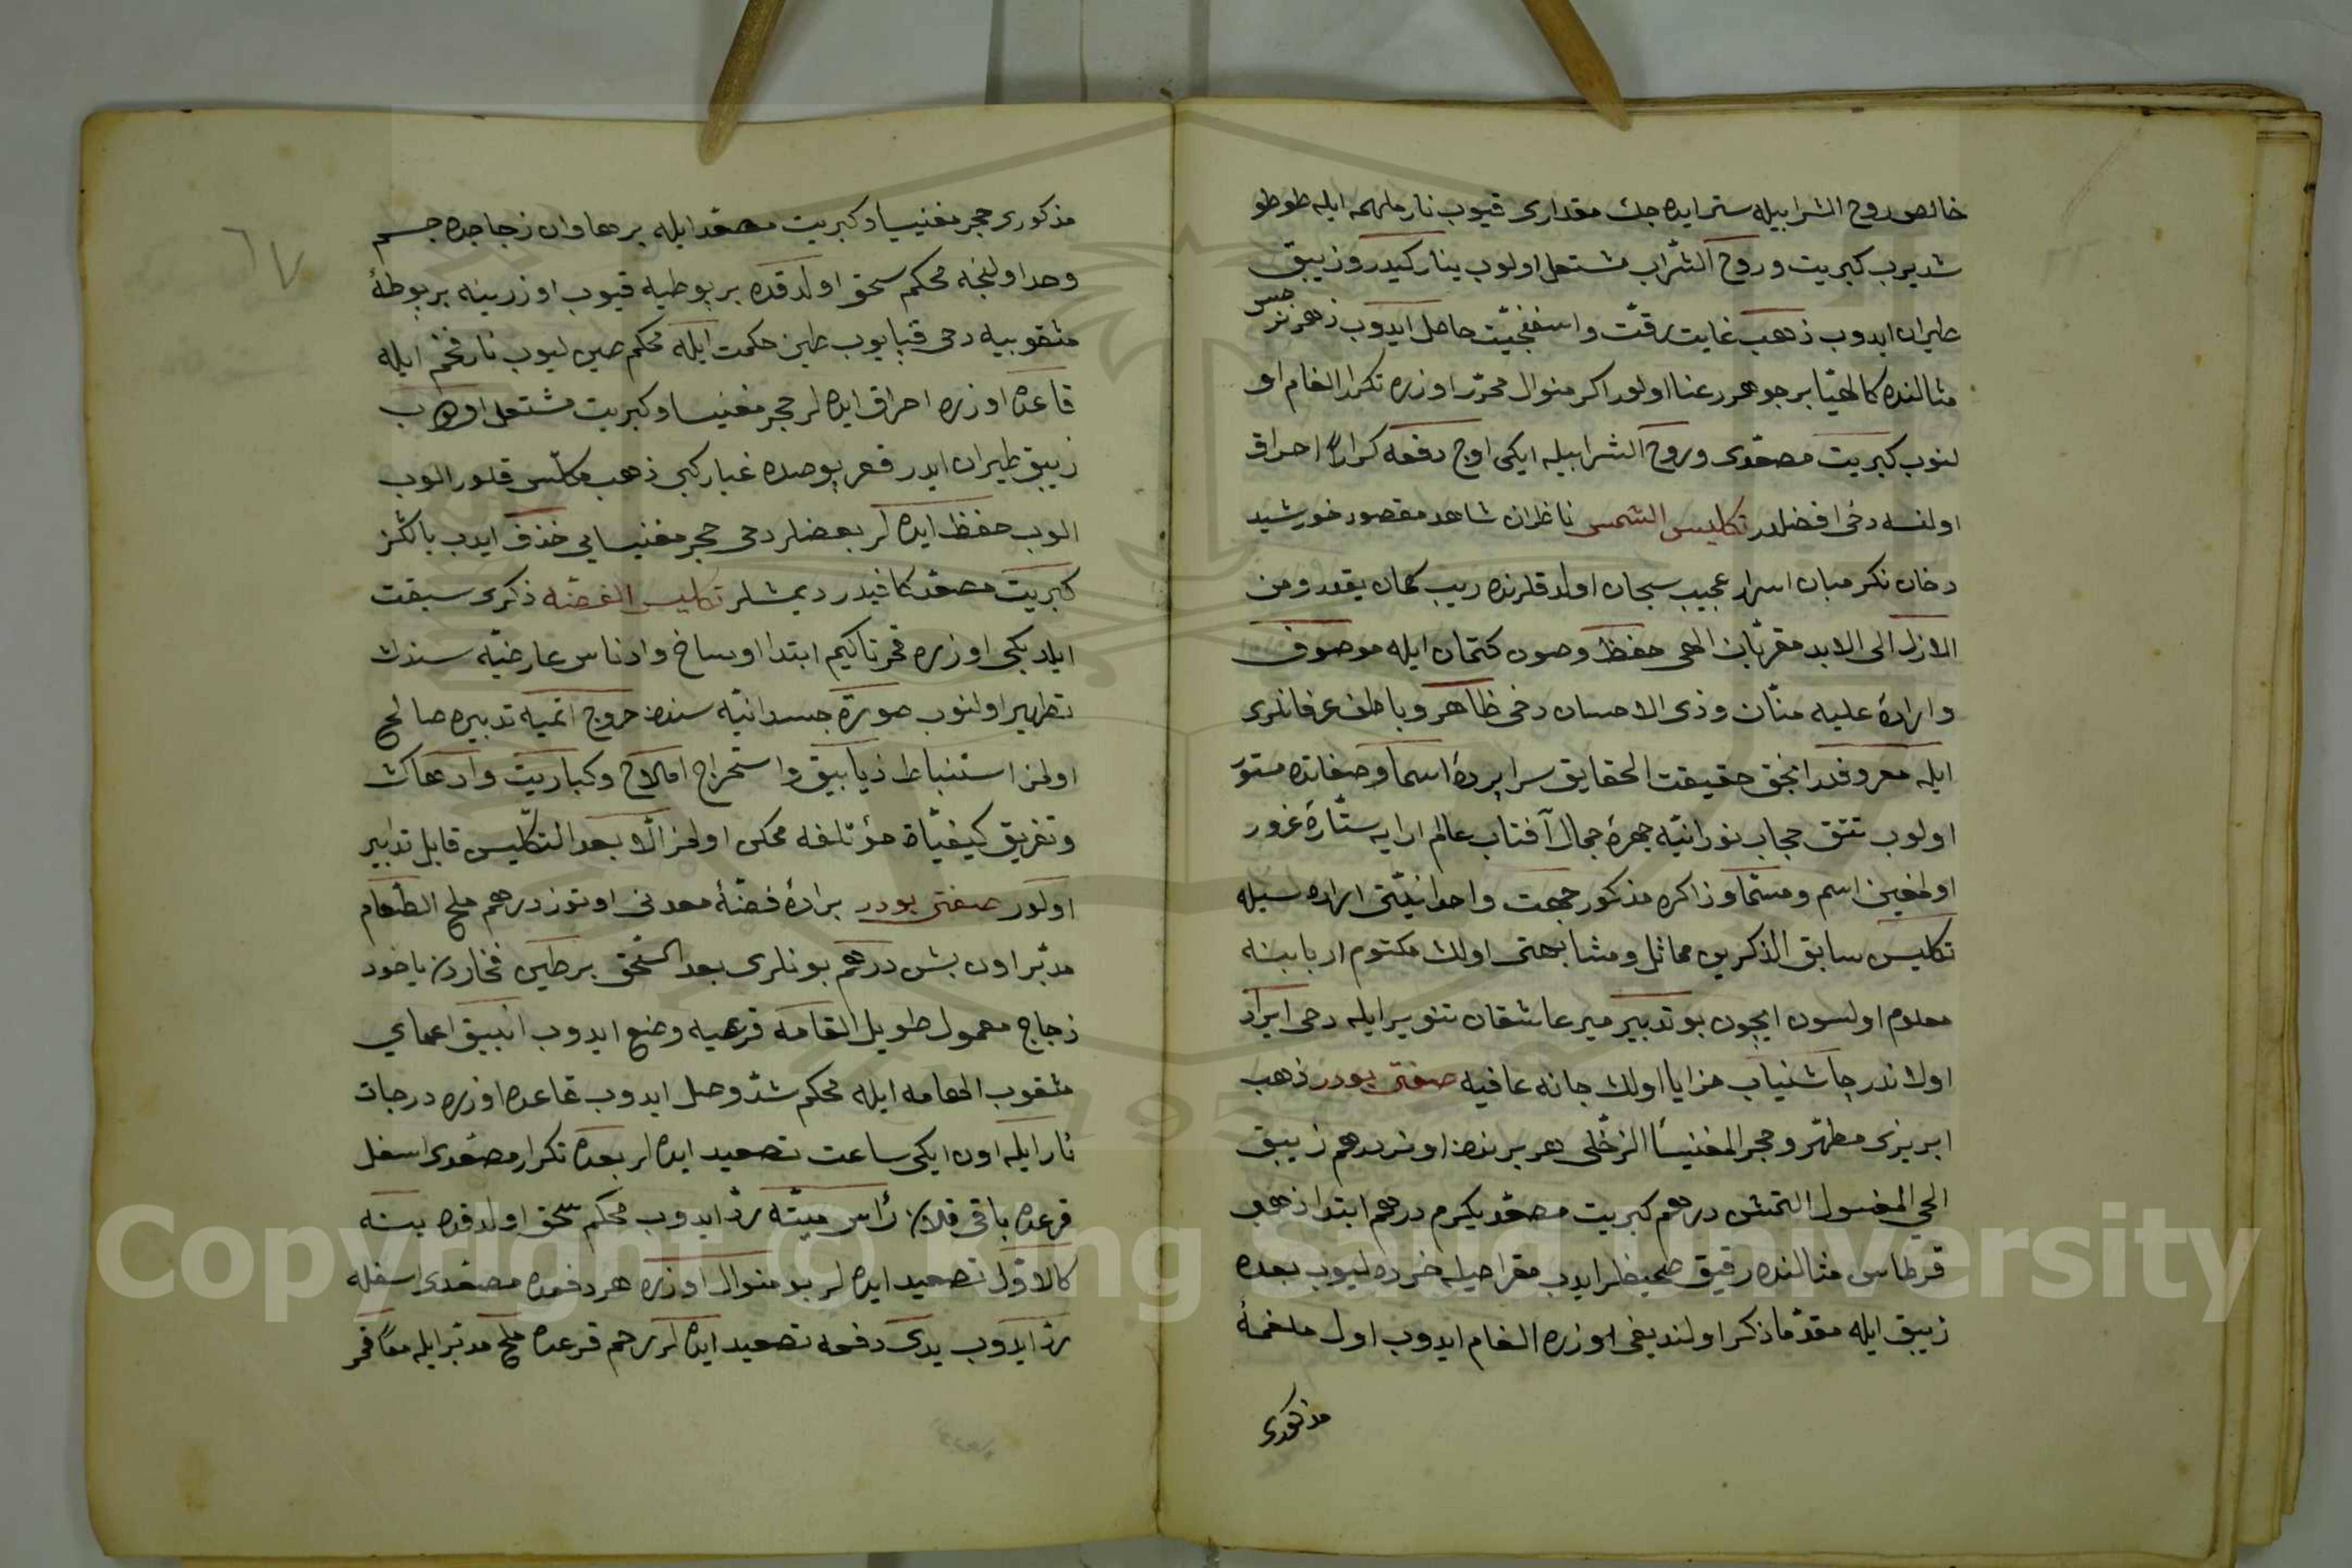 خالص روح الشرابيله ستر ايده جك مقدارى قيوب نار ملهمه ايله طوطو
شديرب كبريت و روح الشراب مشتعل اولوب ينار كيدر و زيبق
طيران ايدوب ذهب غايت رقت و اسفنجيت حاصل ايدوب ذهر نرجس
مثالنده كالهبا بر جوهر رعنا اولور اكر منوال محرر اوزره تكرار الغام او
لنوب كبريت مصعدى و روح الشرابيله ايكى اوچ دفعه كرارا احراق
اولنسه دخى افضلدر تكليس الشمس ناظران شاهد مقصود خورشيد
دخان نكرمبان اسرار عجيب سبحان اولدقلرنده ريب كمان يقدر و من
الازل الى الابد مقربان الهى حفظ و صون كتمان ايله موصوف
و اراده عليه منان و ذى الاحسان دخى ظاهر و باطن عرفانلرى
ايله معروفلدر انجق حقيقت الحقايق سرا پرده اسما و صفاتده مستور
اولوب تتق حجاب نورانيه چهره جمال آفتاب عالم ارايه ستاره غرور
اولمغين اسم و مسما و ذاكره مذكور جهت واحدانيتى اراده سيله
تكليس سابق الذكرين مماثل و مشابهتى اولان مكتوم اربابنه
معلوم اولسون ايچون بو تدبير مير عاشقان تنوير ايله دخى ايراد
اولاندر چاشنياب مزايا اولان جانه عافيه صفتى بودر ذهب
ابريزى مطهر و حجر المغنيسا الزحلى هر برندن اونر درهم زيبق
الحى المغسول التمش درهم كبريت مصعد يكرم درهم ابتدا ذهب
قرطاس مثالنده رقيق صحيفلر ايدب مقراضيله خرده ليوب بعده
زيبق ايله مقدما ذكر اولنديغى اوزره الغام ايدوب اول ملغمه
مذكورى
٦٧
مذكورى حجر مغنيسا و كبريت مصعد ايله بر هاوان زجاجده جسم
وحد اولنجه محكم سحق اولدقده بر بوطيه قيوب اوزرينه بر بوطه
مثقوبيه دخى قپايوب طين حكمت ايله محكم صين ليوب نار فحم ايله
قاعده اوزره احراق ايده لر حجر مغنيسا و كبريت مشتعل اولوب
زيبق طيران ايدر قعر بوصده غبار كبى ذهب مكلس قلور الوب
الوب حفظ ايده لر بعضلر دخى حجر مغنيسايى حذف ايدب يالكز
كبريت مصعد كافيدر ديمشلر تكليس الفضه ذكرى سبقت
ايلديكى اوزره قمر تاكيم ابتدا اوساخ و ادناس عارضيه سندن
تطهير اولنوب صورة جسدانيه سندن خروج اتميه تدبيره صالح
اولمز استنباط زيابيق و استخراج املاح و كباريت و ادهان
و تفريق كيفيات مؤتلفه ممكن اولمز الا بعد التكليس قابل تدابير
اولور صفتى بودر برادۀ فضۀ معدنى اوتوز درهم ملح الطعام
مدبر اون بش درهم بونلرى بعد السحق بر طين فخاردن ياخود
زجاج معمول طويل القامه قرعيه وضع ايدوب انبيق اعماى
مثقوب الهامه ايله محكم شد وصل ايدوب قاعده اوزره درجات
نار ايله اون ايكى ساعت تصعيد ايده لر بعده تكرار مصعدى اسفل
قرعده باقى قلان رأس ميته رد ايدوب محكم سحق اولدقده ينه
كالاول تصعيد ايده لر بو منوال اوزره هر دفعده مصعدى اسفله
رد ايدوب يدى دفعه تصعيد ايده لر رحم قرعده ملح مدبر ايله معا قمر